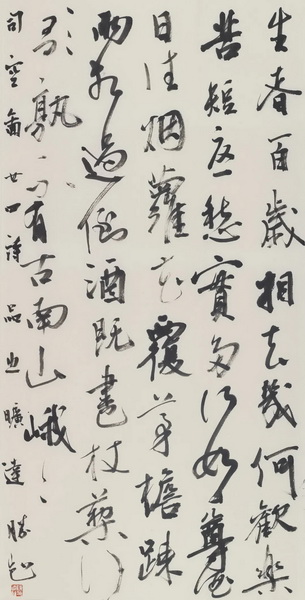 生者百歲相去幾何歡樂
苦短憂愁實多何如尊酒
日往烟蘿花覆茅檐疎
雨相過倒酒既盡杖藜行
歌孰不有古南山峨〻
司空圖廿四詩品曠達